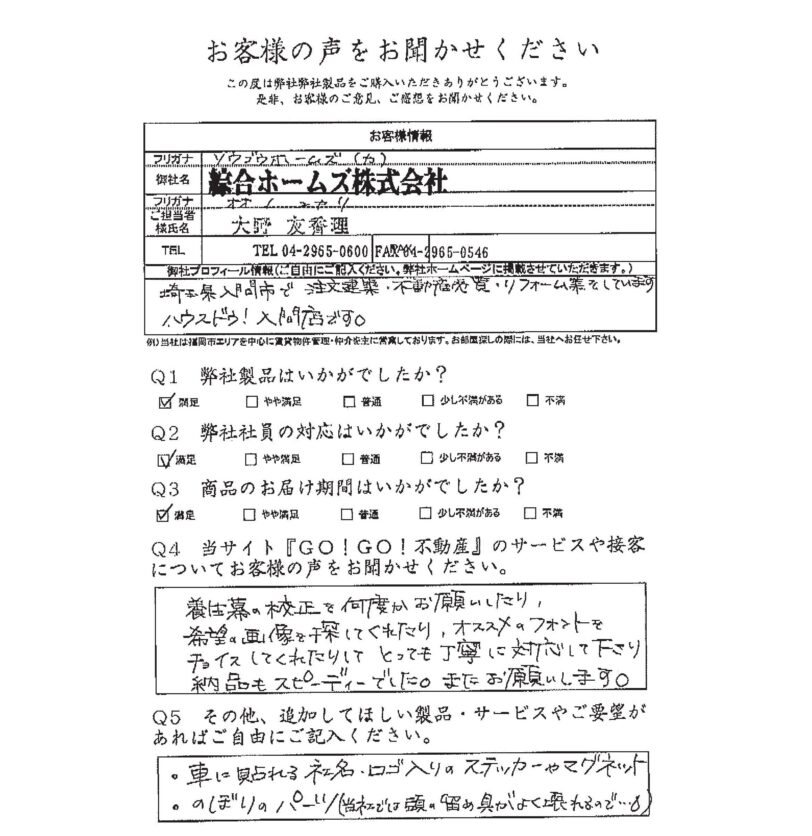 お客様の声をお聞かせください
この度は弊社弊社製品をご購入いただきありがとうございます。
是非、お客様のご意見、ご感想をお聞かせください。
お客様情報
フリガナ ソウゴウホームズ(カ)
御社名 綜合ホームズ株式会社
フリガナ オオノ ユカリ
ご担当者様氏名 大野 友香理
TEL TEL 04-2965-0600 FAX 04-2965-0546
御社プロフィール情報(ご自由にご記入ください。弊社ホームページに掲載させていただきます。)
埼玉県入間市で 注文建築・不動産売買・リフォーム業をしています
ハウスドゥ!入間店です。
例)当社は福岡市エリアを中心に賃貸物件管理・仲介を主に営業しております。お部屋探しの際には、当社へお任せ下さい。
Q1 弊社製品はいかがでしたか?
☑ 満足 □ やや満足 □ 普通 □ 少し不満がある □ 不満
Q2 弊社社員の対応はいかがでしたか?
☑ 満足 □ やや満足 □ 普通 □ 少し不満がある □ 不満
Q3 商品のお届け期間はいかがでしたか?
☑ 満足 □ やや満足 □ 普通 □ 少し不満がある □ 不満
Q4 当サイト『GO!GO!不動産』のサービスや接客
についてお客様の声をお聞かせください。
養生幕の校正を何度かお願いしたり,
希望の画像を探してくれたり,オススメのフォントを
チョイスしてくれたりして とっても丁寧に対応して下さり
納品もスピーディーでした。またお願いします。
Q5 その他、追加してほしい製品・サービスやご要望が
あればご自由にご記入ください。
・車に貼れる社名・ロゴ入りのステッカーやマグネット
・のぼりのパーツ(当社では頭の留め具がよく壊れるので…)